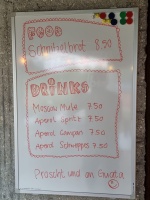 FOOD
Schnitzelbrot 8.50
DRINKS
Moscow Mule 7.50
Aperol Spritz 7.50
Aperol Campari 7.50
Aperol Schweppes 7.50
Präscht und an Guata